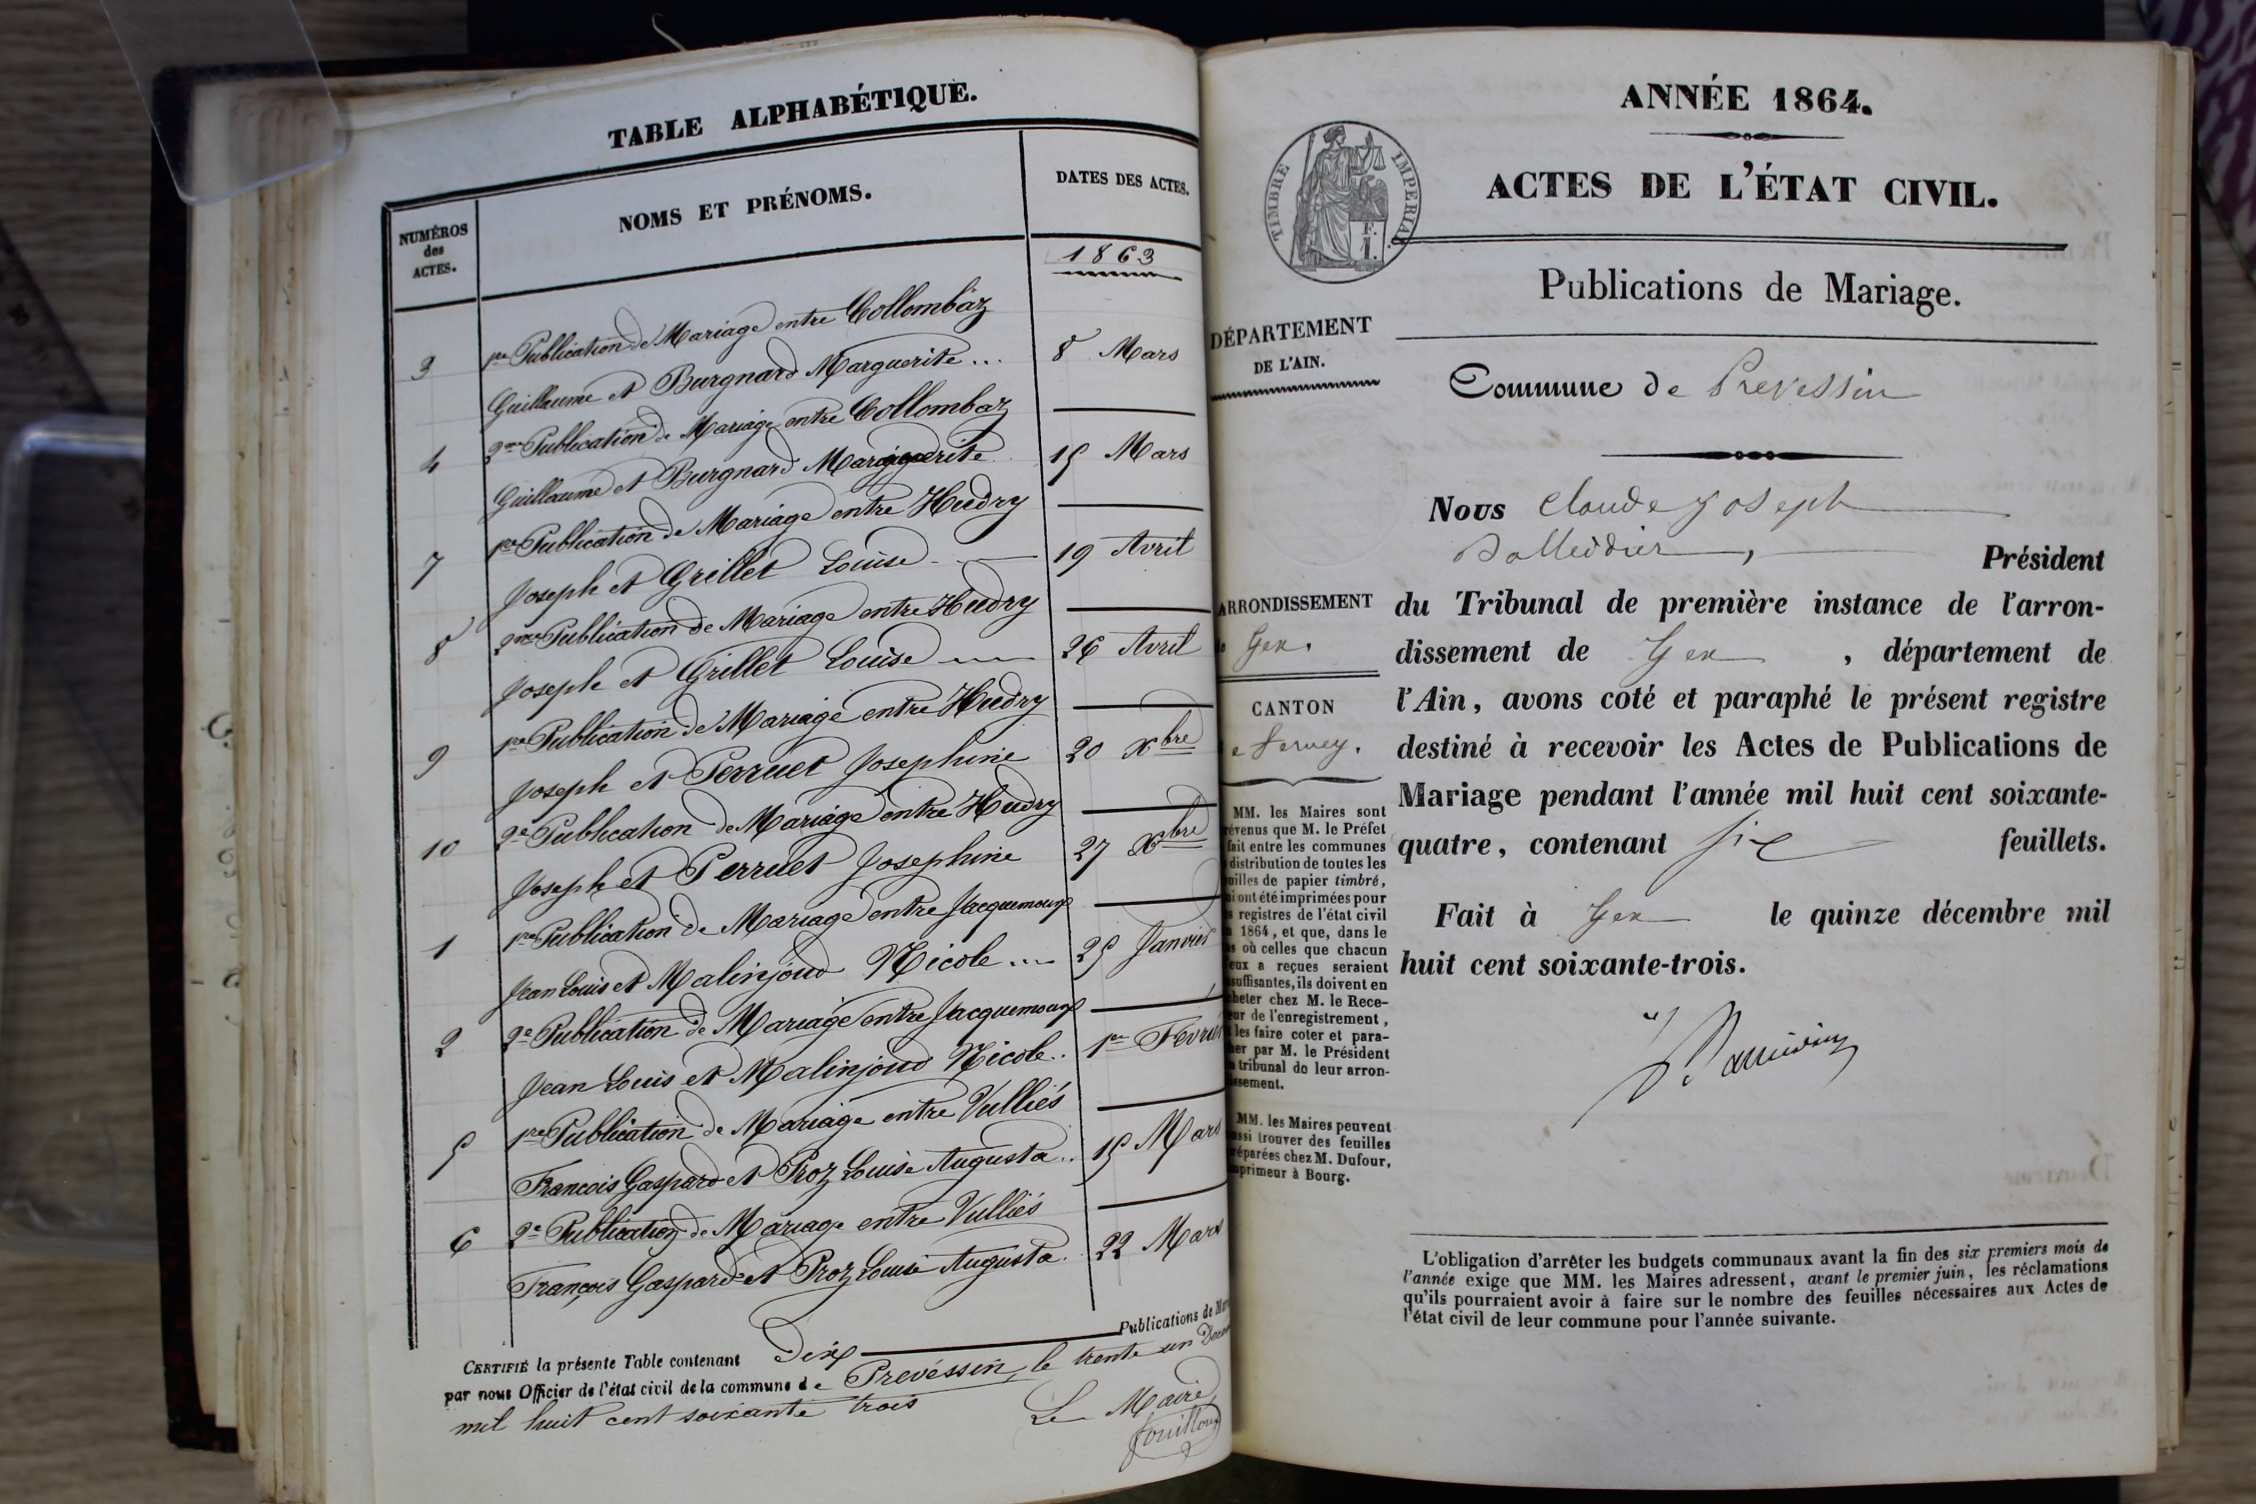 TABLE ALPHABÉTIQUE.
NUMÉROS
des
ACTES.
NOMS ET PRÉNOMS.
DATES DES ACTES.
1863
3 1re Publication de Mariage entre Collombaz
Guillaume et Burgnard Marguerite... 8 Mars
4 2me Publication de Mariage entre Collombaz
Guillaume et Burgnard Marguerite 15 Mars
7 1re Publication de Mariage entre Hudry
Joseph et Grillet Louise 19 Avril
8 2me Publication de Mariage entre Hudry
Joseph et Grillet Louise 26 Avril
9 1re Publication de Mariage entre Hudry
Joseph et Perruet Josephine 20 Xbre
10 2e Publication de Mariage entre Hudry
Joseph et Perruet Josephine 27 Xbre
1 1re Publication de Mariage entre Jacquemoux
Jean Louis et Malinjoud Nicole .... 25 Janvier
2 2e Publication de Mariage entre Jacquemoux
Jean Louis et Malinjoud Nicole.. 1er Fevrier
5 1re Publication de Mariage entre Vulliés
Francois Gaspard et Proz Louise Augusta.. 15 Mars
6 2e Publication de Mariage entre Vulliés
François Gaspard et Proz Louise Augusta. 22 Mars
CERTIFIÉ la présente Table contenant Dix Publications de
par nous Officier de l'état civil de la commune de Prevéssin, le trente un
mil huit cent soixante trois
Le Maire
ANNÉE 1864.
ACTES DE L'ÉTAT CIVIL.
TIMBRE IMPERIAL
F.
1.
Publications de Mariage.
DÉPARTEMENT
DE L'AIN.
Commune de Prevessin
Nous Claude Joseph
Président
du Tribunal de première instance de l'arron-
dissement de Gex , département de
l'Ain, avons coté et paraphé le présent registre
destiné à recevoir les Actes de Publications de
Mariage pendant l'année mil huit cent soixante-
quatre, contenant six feuillets.
Fait à Gex le quinze décembre mil
huit cent soixante-trois.
ARRONDISSEMENT
Gex.
CANTON
Ferney.
MM. les Maires sont
prévenus que M. le Préfet
fait entre les communes
distribution de toutes les
feuilles de papier timbré,
qui ont été imprimées pour
les registres de l'état civil
1864, et que, dans le
cas où celles que chacun
d'eux a reçues seraient
insuffisantes, ils doivent en
acheter chez M. le Rece-
veur de l'enregistrement,
les faire coter et para-
pher par M. le Président
du tribunal de leur arron-
dissement.
MM. les Maires peuvent
aussi trouver des feuilles
préparées chez M. Dufour,
imprimeur à Bourg.
L'obligation d'arrêter les budgets communaux avant la fin des six premiers mois de
l'année exige que MM. les Maires adressent, avant le premier juin, les réclamations
qu'ils pourraient avoir à faire sur le nombre des feuilles nécessaires aux Actes de
l'état civil de leur commune pour l'année suivante.